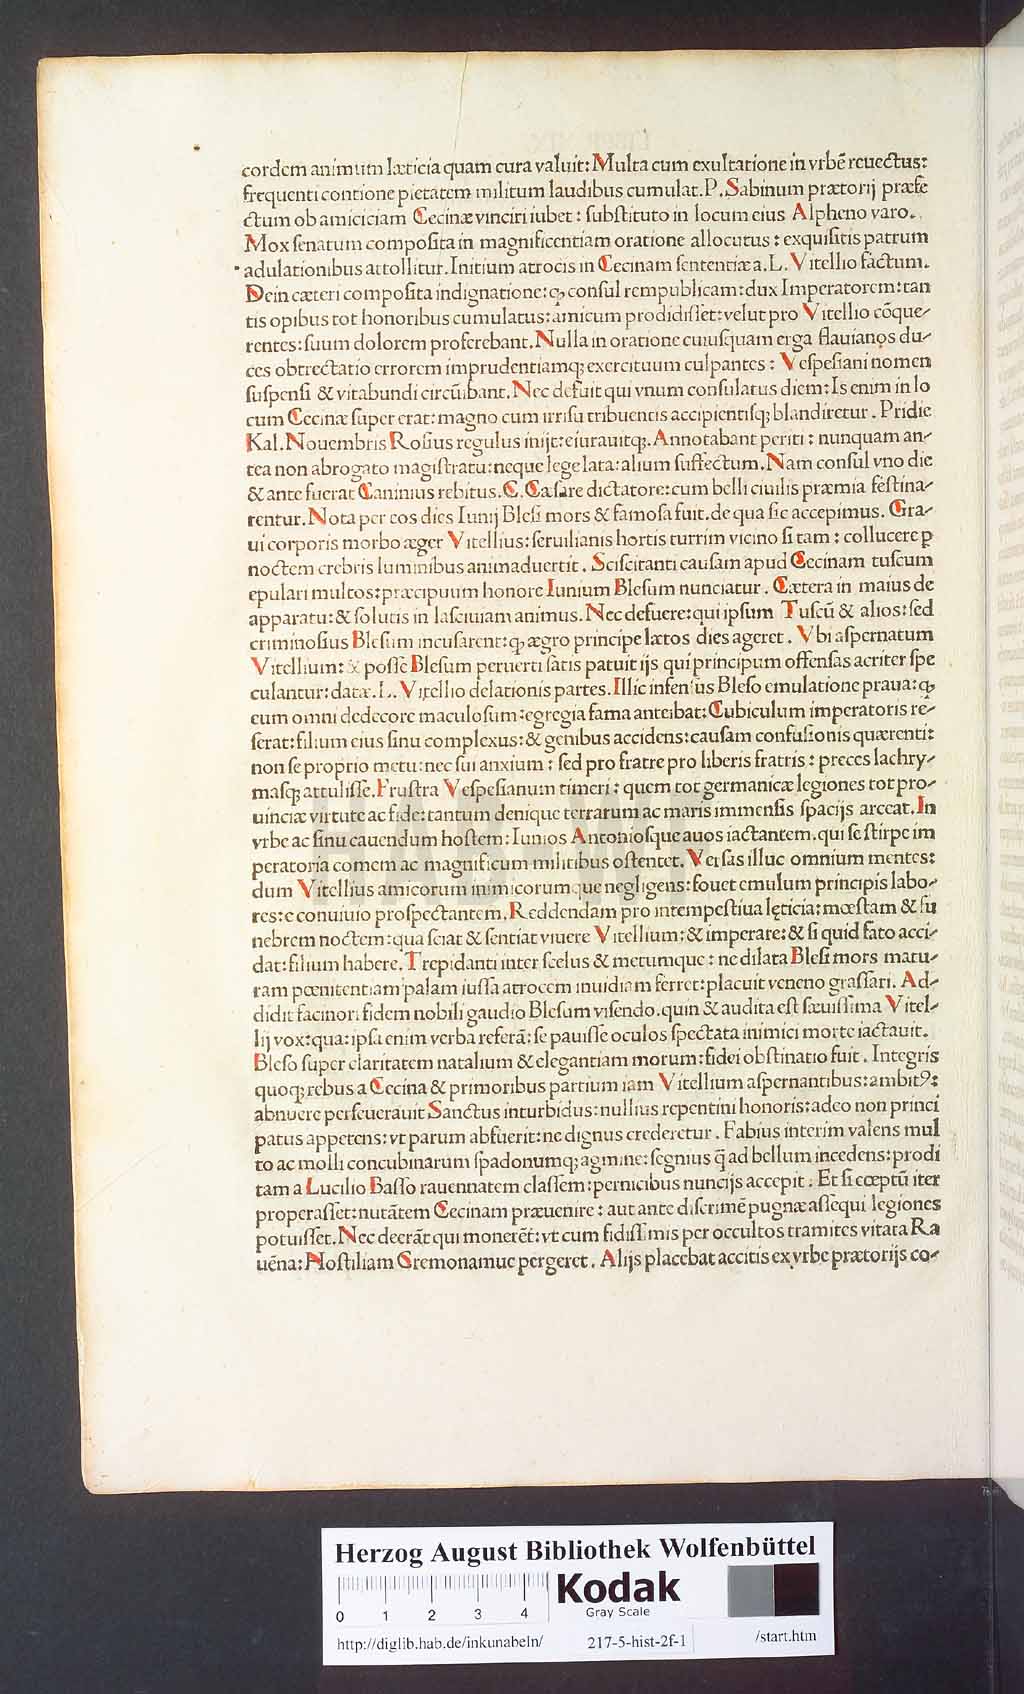 cordem animum læticia quam cura valuit: Multa cum exultatione in vrbē reuectus:
frequenti contione pietatem militum laudibus cumulat. P. Sabinum prætorij præfe
ctum ob amiciciam Cecinæ vinciri iubet: substituto in locum eius Alpheno varo.
Mox senatum composita in magnificentiam oratione allocutus: exquisitis patrum
adulationibus attollitur. Initium atrocis in Cecinam sententiæ a. L. Vitellio factum.
Dein cæteri composita indignatione: ꝙ consul rempublicam: dux Imperatorem: tan
tis opibus tot honoribus cumulatus: amicum prodidisset: velut pro Vitellio cōque-
rentes: suum dolorem proferebant. Nulla in oratione cuiusquam erga flauianos du-
ces obtrectatio errorem imprudentiamq; exercituum culpantes: Vespesiani nomen
suspensi & vitabundi circūibant. Nec defuit qui vnum consulatus diem: Is enim in lo
cum Cecinæ super erat: magno cum irrisu tribuentis accipientisq; blandiretur. Pridie
Kal. Nouembris Rosius regulus inijt: eiurauitq;. Annotabant periti: nunquam an-
tea non abrogato magistratu: neque lege lata: alium suffectum. Nam consul vno die
& ante fuerat Caninius rebitus. C. Cæsare dictatore: cum belli ciuilis præmia festina-
rentur. Nota per eos dies Iunij Blesi mors & famosa fuit. de qua sic accepimus. Gra-
ui corporis morbo æger Vitellius: seruilianis hortis turrim vicino sitam: collucere p
noctem crebris luminibus animaduertit. Sciscitanti causam apud Cecinam tuscum
epulari multos: præcipuum honore Iunium Blesum nunciatur. Cætera in maius de
apparatu: & solutis in lasciuiam animus. Nec defuere: qui ipsum Tuscū & alios: sed
criminosius Blesum incusarent: ꝙ ægro principe lætos dies ageret. Vbi aspernatum
Vitellium: & posse Blesum peruerti satis patuit ijs qui principum offensas acriter spe
culantur: datæ. L. Vitellio delationis partes. Illic infensus Bleso emulatione praua: ꝙ
eum omni dedecore maculosum: egregia fama anteibat: Cubiculum imperatoris re-
serat: filium eius sinu complexus: & genibus accidens: causam confusionis quærenti:
non se proprio metu: nec sui anxium: sed pro fratre pro liberis fratris: preces lachry-
masq; attulisse. Frustra Vespesianum timeri: quem tot germanicæ legiones tot pro-
uinciæ virtute ac fide: tantum denique terrarum ac maris immensis spacijs arceat. In
vrbe ac sinu cauendum hostem: Iunios Antoniosque auos iactantem. qui se stirpe im
peratoria comem ac magnificum militibus ostentet. Versas illuc omnium mentes:
dum Vitellius amicorum inimicorumque negligens: fouet emulum principis labo-
res: e conuiuio prospectantem. Reddendam pro intempestiua lęticia: mœstam & fu
nebrem noctem: qua sciat & sentiat viuere Vitellium: & imperare: & si quid fato acci-
dat: filium habere. Trepidanti inter scelus & metumque: ne dilata Blesi mors matu-
ram pœnitentiam palam iussa atrocem inuidiam ferret: placuit veneno grassari. Ad-
didit facinori fidem nobili gaudio Blesum visendo. quin & audita est sæuissima Vitel-
lij vox: qua: ipsa enim verba referā: se pauisse oculos spectata inimici morte iactauit.
Bleso super claritatem natalium & elegantiam morum: fidei obstinatio fuit. Integris
quoq; rebus a Cecina & primoribus partium iam Vitellium aspernantibus: ambitꝰ:
abnuere perseuerauit Sanctus inturbidus: nullius repentini honoris: adeo non princi
patus appetens: vt parum abfuerit: ne dignus crederetur. Fabius interim valens mul
to ac molli concubinarum spadonumq; agmine: segnius q̄ ad bellum incedens: prodi
tam a Lucilio Basso rauennatem classem: pernicibus nuncijs accepit. Et si cœptū iter
properasset: nutātem Cecinam præuenire: aut ante discrimē pugnæ assequi legiones
potuisset. Nec deerāt qui monerēt: vt cum fidissimis per occultos tramites vitata Ra
uēna: Hostiliam Cremonamue pergeret. Alijs placebat accitis ex vrbe prætorijs co-
HAB WF
Herzog August Bibliothek Wolfenbüttel
Kodak
Gray Scale
0 1 2 3 4
http://diglib.hab.de/inkunabeln/ 217-5-hist-2f-1 /start.htm